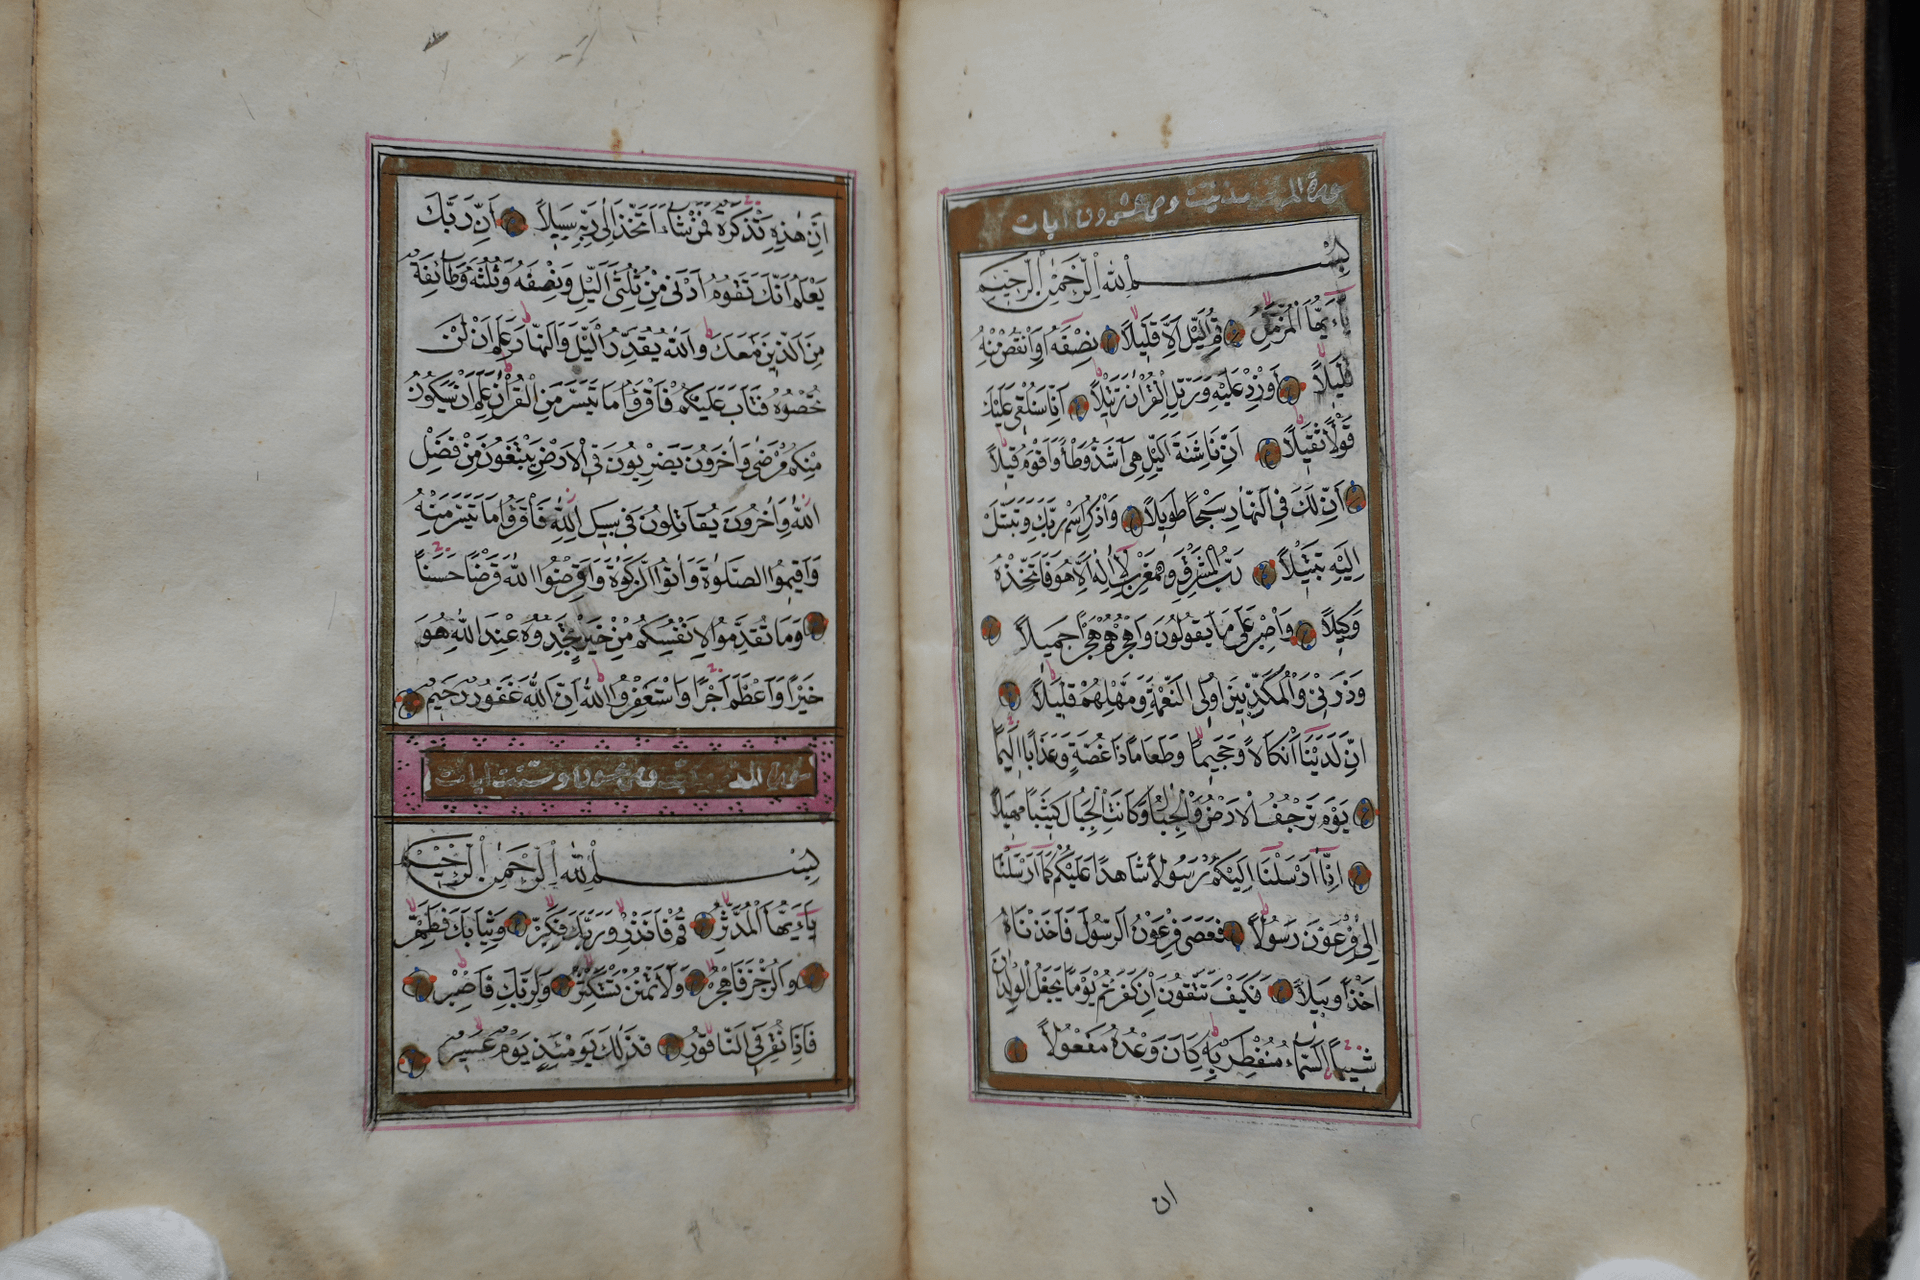 سورة المزمل مدنية وهي عشرون ايات
بِسْمِ اللهِ الرَّحْمٰنِ الرَّحِيمِ
يَاءَيُّهَا الْمُزَّمِّلُ قُمِ الَّيْلَ اِلَّا قَلِيلاً نِصْفَهُ اَوِ انْقُصْ مِنْهُ
قَلِيلاً اَوْ زِدْ عَلَيْهِ وَرَتِّلِ الْقُرْاٰنَ تَرْتِيلاً اِنَّا سَنُلْقِى عَلَيْكَ
قَوْلاً ثَقِيلاً اِنَّ نَاشِئَةَ الَّيْلِ هِىَ اَشَدُّ وَطْأً وَاَقْوَمُ قِيلاً
اِنَّ لَكَ فِى النَّهَارِ سَبْحًا طَوِيلاً وَاذْكُرِ اسْمَ رَبِّكَ وَتَبَتَّلْ
اِلَيْهِ تَبْتِيلاً رَبُّ الْمَشْرِقِ وَالْمَغْرِبِ لَا اِلٰهَ اِلَّا هُوَ فَاتَّخِذْهُ
وَكِيلاً وَاصْبِرْ عَلٰى مَا يَقُولُونَ وَاهْجُرْهُمْ هَجْرًا جَمِيلاً
وَذَرْنِى وَالْمُكَذِّبِينَ اُولِى النَّعْمَةِ وَمَهِّلْهُمْ قَلِيلاً
اِنَّ لَدَيْنَا اَنْكَالاً وَجَحِيمًا وَطَعَامًا ذَا غُصَّةٍ وَعَذَابًا اَلِيمًا
يَوْمَ تَرْجُفُ الْاَرْضُ وَالْجِبَالُ وَكَانَتِ الْجِبَالُ كَثِيبًا مَهِيلاً
اِنَّا اَرْسَلْنَا اِلَيْكُمْ رَسُولاً شَاهِدًا عَلَيْكُمْ كَمَا اَرْسَلْنَا
اِلٰى فِرْعَوْنَ رَسُولاً فَعَصٰى فِرْعَوْنُ الرَّسُولَ فَاَخَذْنَاهُ
اَخْذًا وَبِيلاً فَكَيْفَ تَتَّقُونَ اِنْ كَفَرْتُمْ يَوْمًا يَجْعَلُ الْوِلْدَانَ
شِيبًا السَّمَاءُ مُنْفَطِرٌ بِهِ كَانَ وَعْدُهُ مَفْعُولاً
ان
اِنَّ هٰذِهِ تَذْكِرَةٌ فَمَنْ شَاءَ اتَّخَذَ اِلٰى رَبِّهِ سَبِيلاً اِنَّ رَبَّكَ
يَعْلَمُ اَنَّكَ تَقُومُ اَدْنٰى مِنْ ثُلُثَىِ الَّيْلِ وَنِصْفَهُ وَثُلُثَهُ وَطَائِفَةٌ
مِنَ الَّذِينَ مَعَكَ وَاللهُ يُقَدِّرُ الَّيْلَ وَالنَّهَارَ عَلِمَ اَنْ لَنْ
تُحْصُوهُ فَتَابَ عَلَيْكُمْ فَاقْرَؤُا مَا تَيَسَّرَ مِنَ الْقُرْاٰنِ عَلِمَ اَنْ سَيَكُونُ
مِنْكُمْ مَرْضٰى وَاٰخَرُونَ يَضْرِبُونَ فِى الْاَرْضِ يَبْتَغُونَ مِنْ فَضْلِ
اللهِ وَاٰخَرُونَ يُقَاتِلُونَ فِى سَبِيلِ اللهِ فَاقْرَؤُا مَا تَيَسَّرَ مِنْهُ
وَاَقِيمُوا الصَّلٰوةَ وَاٰتُوا الزَّكٰوةَ وَاَقْرِضُوا اللهَ قَرْضًا حَسَنًا
وَمَا تُقَدِّمُوا لِاَنْفُسِكُمْ مِنْ خَيْرٍ تَجِدُوهُ عِنْدَ اللهِ هُوَ
خَيْرًا وَاَعْظَمَ اَجْرًا وَاسْتَغْفِرُوا اللهَ اِنَّ اللهَ غَفُورٌ رَحِيمٌ
سورة المدثر وهي خمسون وستت ايات
بِسْمِ اللهِ الرَّحْمٰنِ الرَّحِيمِ
يَاءَيُّهَا الْمُدَّثِّرُ قُمْ فَاَنْذِرْ وَرَبَّكَ فَكَبِّرْ وَثِيَابَكَ فَطَهِّرْ
وَالرُّجْزَ فَاهْجُرْ وَلَا تَمْنُنْ تَسْتَكْثِرُ وَلِرَبِّكَ فَاصْبِرْ
فَاِذَا نُقِرَ فِى النَّاقُورِ فَذٰلِكَ يَوْمَئِذٍ يَوْمٌ عَسِيرٌ